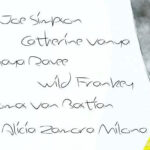 Joe Simpson
Catherine Vanya
Dovee
Wild Frankey
Von Bartton
Alicia Zamora Milano